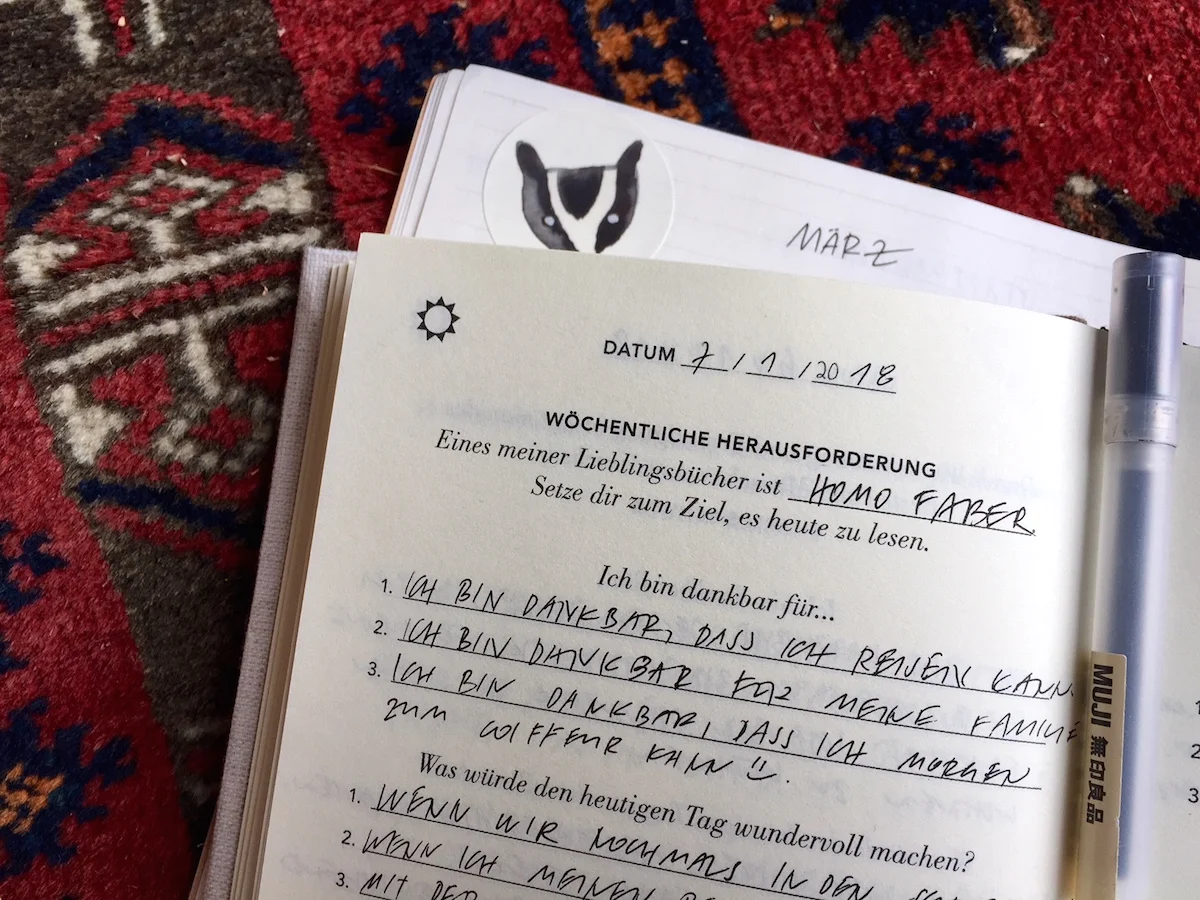 MÄRZ
DATUM 7 / 1 / 20 18
WÖCHENTLICHE HERAUSFORDERUNG
Eines meiner Lieblingsbücher ist HOMO FABER
Setze dir zum Ziel, es heute zu lesen.
Ich bin dankbar für...
1. ICH BIN DANKBAR, DASS ICH REISEN KANN.
2. ICH BIN DANKBAR FÜR MEINE FAMILIE
3. ICH BIN DANKBAR, DASS ICH MORGEN
ZUM COIFFEUR KANN
Was würde den heutigen Tag wundervoll machen?
1. WENN WIR NOCHMALS IN DEN
2. WENN ICH MEINEN
3. MIT DER
MUJI 無印良品
1
2
3